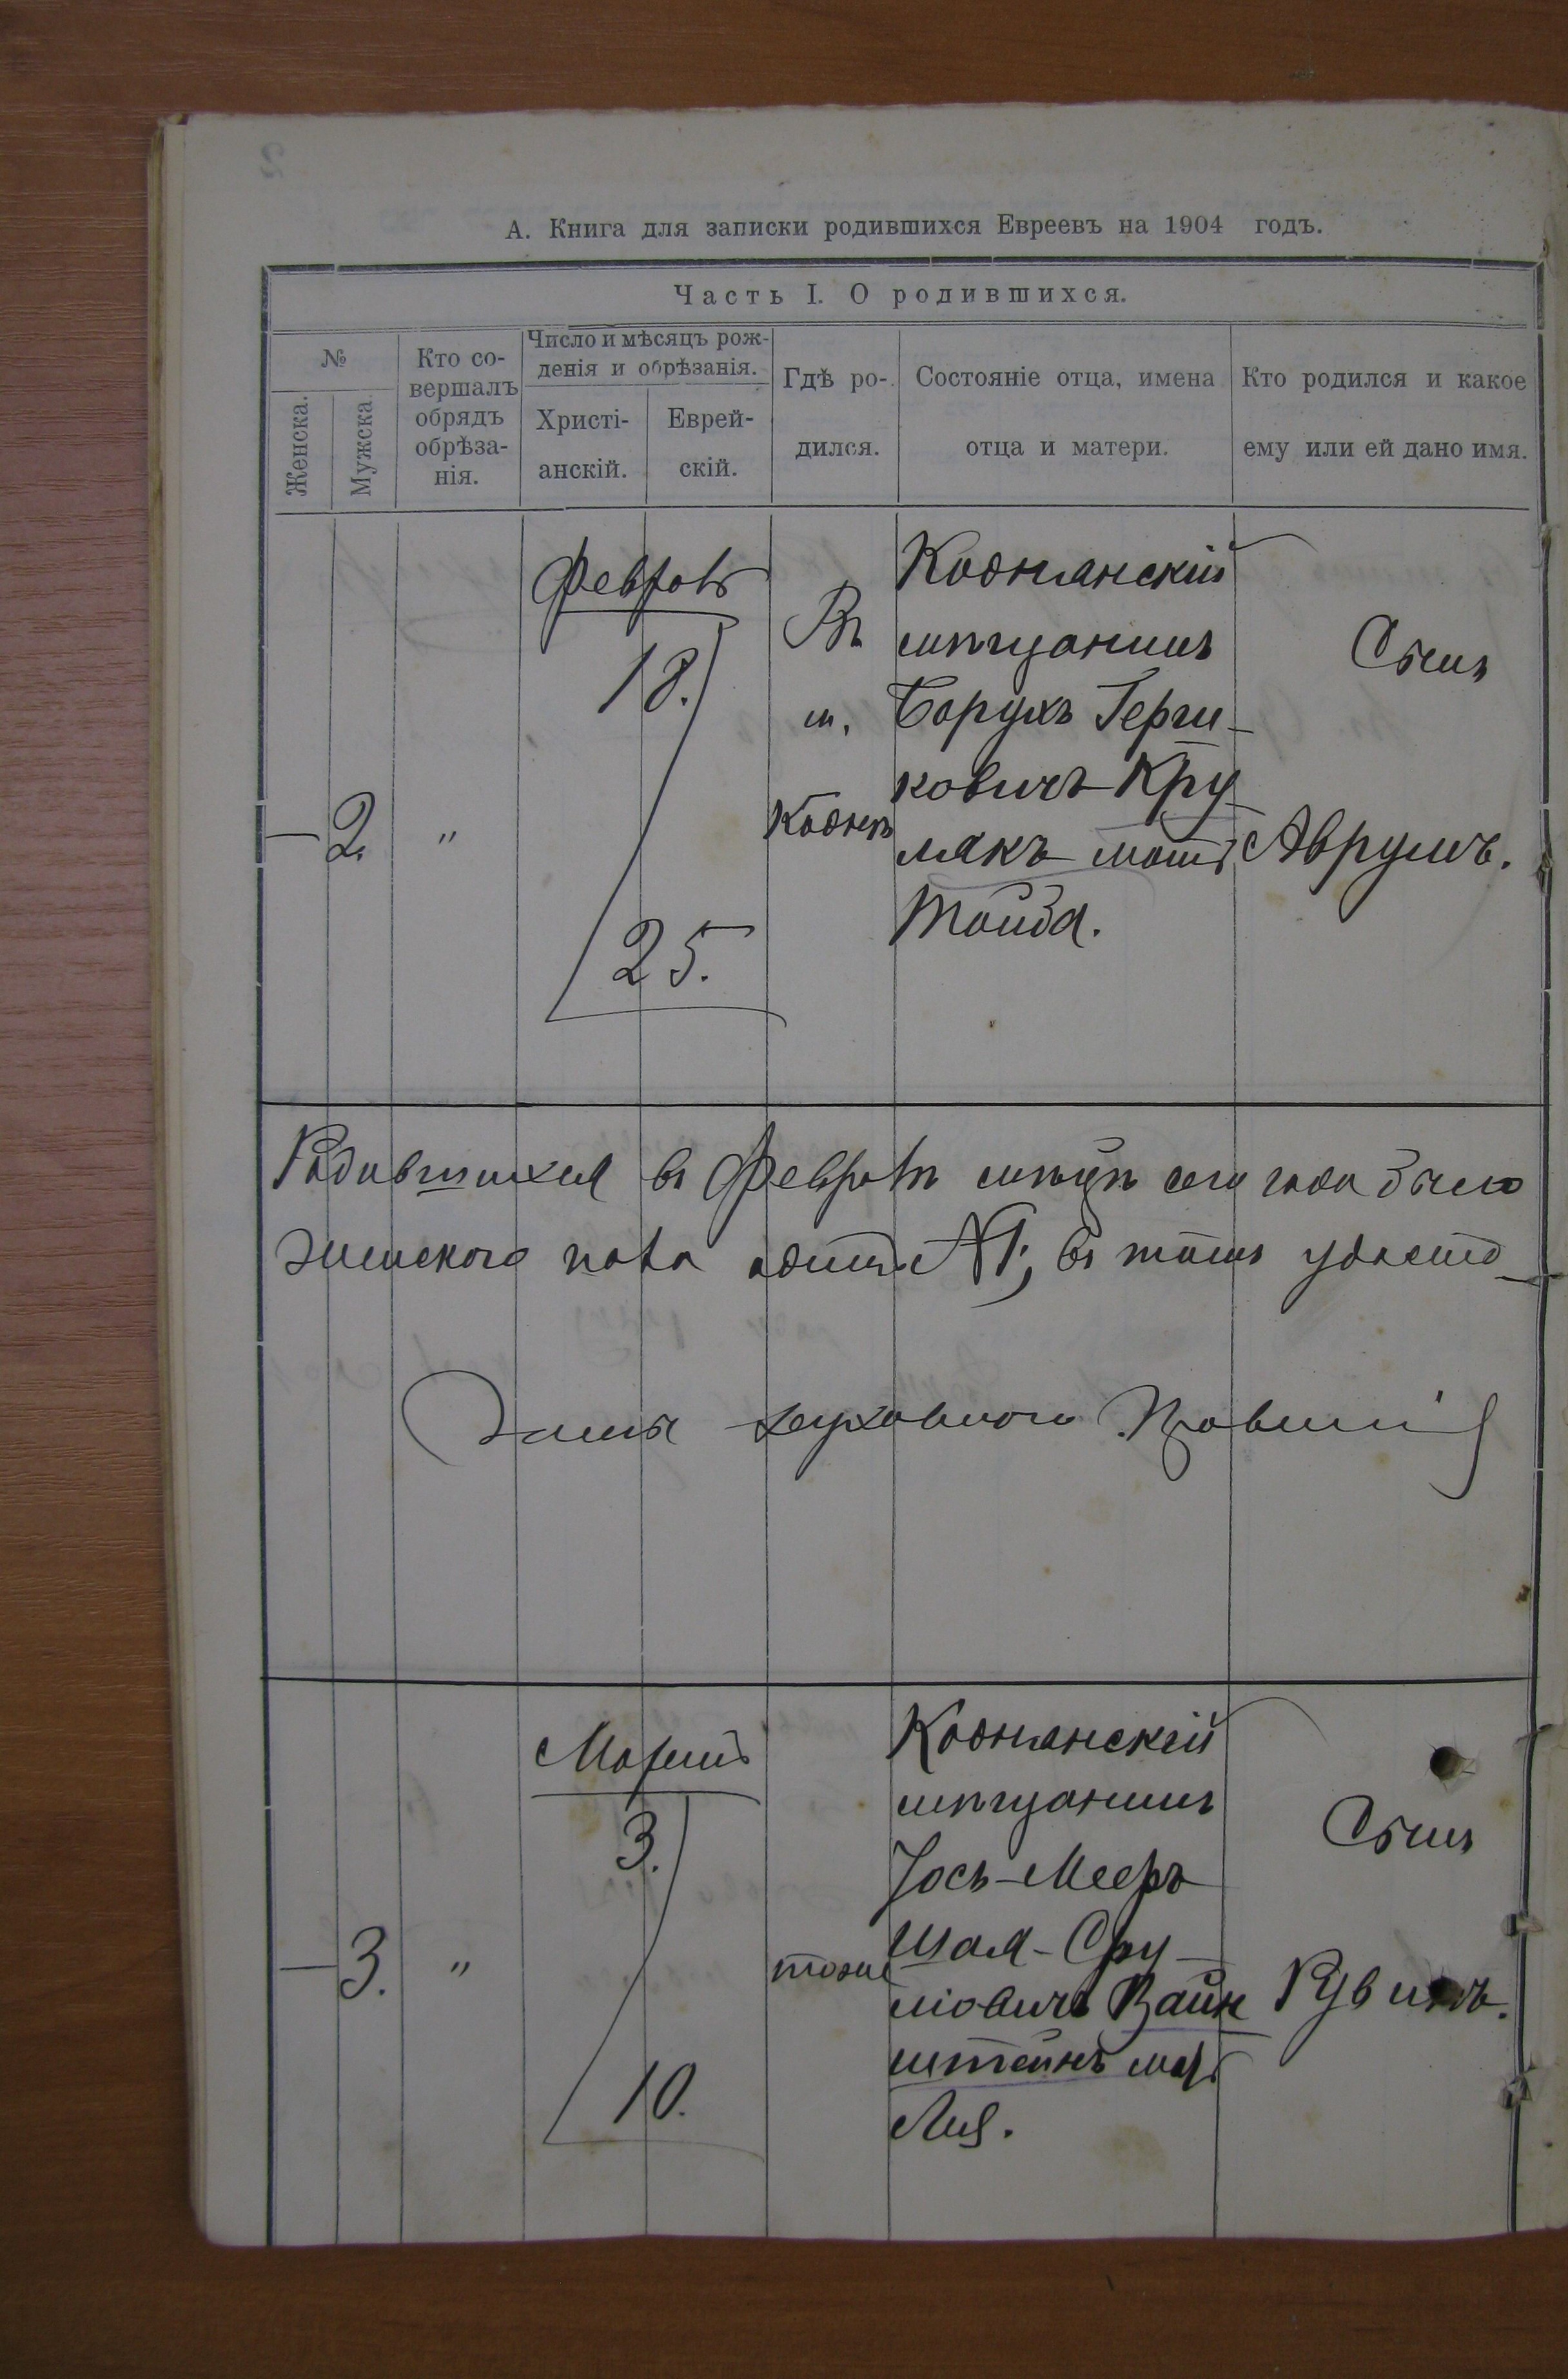 А. Книга для записки родившихся Евреевъ на 1904 годъ.
Часть I. О родившихся.
№
Женска.
Мужска.
Кто со-
вершалъ
обрядъ
обрѣза-
нія.
Число и мѣсяцъ рож-
денія и обрѣзанія.
Христі-
анскій.
Еврей-
скій.
Гдѣ ро-
дился.
Состояніе отца, имена
отца и матери.
Кто родился и какое
ему или ей дано имя.
— 2.
"
Февраль
18.
25.
Въ
м.
Кодня
Коднянскій
мѣщанинъ
Борухъ Герш-
ковичъ Кру
лякъ мать
Тойба.
Сынъ
Аврумъ.
Родившихся въ Февралѣ мѣсяцѣ сего года было
женского пола одинъ №1, въ томъ удосто-
Духовного Правленія
Мартъ
3.
10.
— 3.
"
тоже
Коднянскій
мѣщанинъ
Іось-Мееръ
Шая-Сру
ліовичъ Вайн
штейнъ мать
Лия.
Сынъ
Рувинъ.